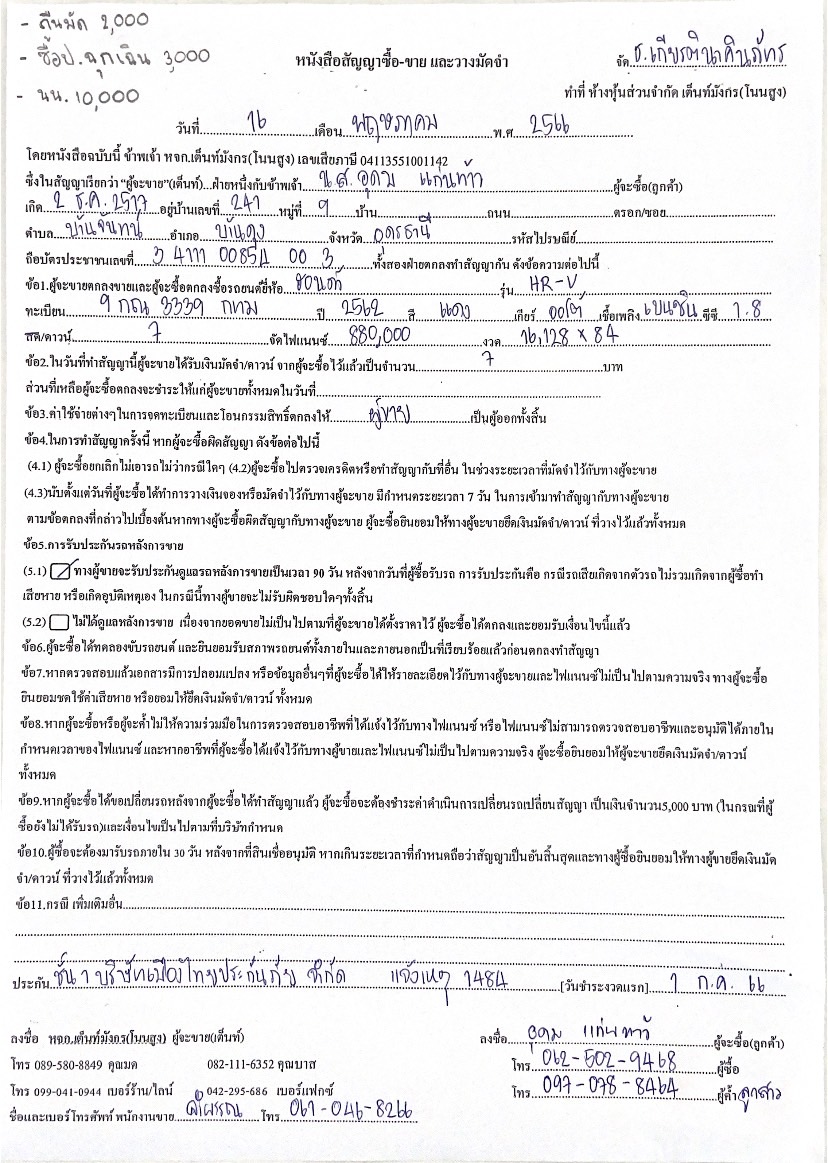 - คืนมัด 2,000
- ซื้อป.ฉุกเฉิน 3,000
- นน. 10,000
หนังสือสัญญาซื้อ-ขาย และวางมัดจำ
จัด ธ.เกียรตินาคินภัทร
ทำที่ ห้างหุ้นส่วนจำกัด เต็นท์มังกร(โนนสูง)
วันที่ 16 เดือน พฤษภาคม พ.ศ 2566
โดยหนังสือฉบับนี้ ข้าพเจ้า หจก.เต็นท์มังกร(โนนสูง) เลขเสียภาษี 04113551001142
ซึ่งในสัญญาเรียกว่า "ผู้จะขาย"(เต็นท์)...ฝ่ายหนึ่งกับข้าพเจ้า น.ส. อุดม แก่นท้าว ผู้จะซื้อ(ลูกค้า)
เกิด 2 ธ.ค. 2517 อยู่บ้านเลขที่ 241 หมู่ที่ 9 บ้าน ถนน ตรอก/ซอย
ตำบล บ้านจันทน์ อำเภอ บ้านดุง จังหวัด อุดรธานี รหัสไปรษณีย์
ถือบัตรประชาชนเลขที่ 3 4111 00854 00 3 ทั้งสองฝ่ายตกลงทำสัญญากัน ดังข้อความต่อไปนี้
ข้อ1.ผู้จะขายตกลงขายและผู้จะซื้อตกลงซื้อรถยนต์ยี่ห้อ ฮอนด้า รุ่น HR-V
ทะเบียน 9 กณ 3339 กทม ปี 2562 สี แดง เกียร์ ออโต้ เชื้อเพลิง เบนซิน ซีซี 1.8
สด/ดาวน์ 7 จัดไฟแนนซ์ 880,000 งวด 16,128 x 84
ข้อ2.ในวันที่ทำสัญญานี้ผู้จะขายได้รับเงินมัดจำ/ดาวน์ จากผู้จะซื้อไว้แล้วเป็นจำนวน 7 บาท
ส่วนที่เหลือผู้จะซื้อตกลงจะชำระให้แก่ผู้จะขายทั้งหมดในวันที่
ข้อ3.ค่าใช้จ่ายต่างๆในการจดทะเบียนและโอนกรรมสิทธิ์ตกลงให้ ผู้ขาย เป็นผู้ออกทั้งสิ้น
ข้อ4.ในการทำสัญญาครั้งนี้ หากผู้จะซื้อผิดสัญญา ดังข้อต่อไปนี้
(4.1) ผู้จะซื้อยกเลิกไม่เอารถไม่ว่ากรณีใดๆ (4.2)ผู้จะซื้อไปตรวจเครดิตหรือทำสัญญากับที่อื่น ในช่วงระยะเวลาที่มัดจำไว้กับทางผู้จะขาย
(4.3)นับตั้งแต่วันที่ผู้จะซื้อได้ทำการวางเงินจองหรือมัดจำไว้กับทางผู้จะขาย มีกำหนดระยะเวลา 7 วัน ในการเข้ามาทำสัญญากับทางผู้จะขาย
ตามข้อตกลงที่กล่าวไปเบื้องต้นหากทางผู้จะซื้อผิดสัญญากับทางผู้จะขาย ผู้จะซื้อยินยอมให้ทางผู้จะขายยึดเงินมัดจำ/ดาวน์ ที่วางไว้แล้วทั้งหมด
ข้อ5.การรับประกันรถหลังการขาย
(5.1) ทางผู้ขายจะรับประกันดูแลรถหลังการขายเป็นเวลา 90 วัน หลังจากวันที่ผู้ซื้อรับรถ การรับประกันคือ กรณีรถเสียเกิดจากตัวรถไม่รวมเกิดจากผู้ซื้อทำ
เสียหาย หรือเกิดอุบัติเหตุเอง ในกรณีนี้ทางผู้ขายจะไม่รับผิดชอบใดๆทั้งสิ้น
(5.2) ไม่ได้ดูแลหลังการขาย เนื่องจากยอดขายไม่เป็นไปตามที่ผู้จะขายได้ตั้งราคาไว้ ผู้จะซื้อ ได้ตกลงและยอมรับเงื่อนไขนี้แล้ว
ข้อ6.ผู้จะซื้อได้ทดลองขับรถยนต์ และยินยอมรับสภาพรถยนต์ทั้งภายในและภายนอกเป็นที่เรียบร้อยแล้วก่อนตกลงทำสัญญา
ข้อ7.หากตรวจสอบแล้วเอกสารมีการปลอมแปลง หรือข้อมูลอื่นๆที่ผู้จะซื้อได้ให้รายละเอียดไว้กับทางผู้จะขายและไฟแนนซ์ไม่เป็นไปตามความจริง ทางผู้จะซื้อ
ยินยอมชดใช้ค่าเสียหาย หรือยอมให้ยึดเงินมัดจำ/ดาวน์ ทั้งหมด
ข้อ8.หากผู้จะซื้อหรือผู้จะค้ำไม่ให้ความร่วมมือในการตรวจสอบอาชีพที่ได้แจ้งไว้กับทางไฟแนนซ์ หรือไฟแนนซ์ไม่สามารถตรวจสอบอาชีพและอนุมัติได้ภายใน
กำหนดเวลาของไฟแนนซ์ และหากอาชีพที่ผู้จะซื้อได้แจ้งไว้กับทางผู้ขายและไฟแนนซ์ไม่เป็นไปตามความจริง ผู้จะซื้อยินยอมให้ผู้จะขายยึดเงินมัดจำ/ดาวน์
ทั้งหมด
ข้อ9.หากผู้จะซื้อได้ขอเปลี่ยนรถหลังจากผู้จะซื้อได้ทำสัญญาแล้ว ผู้จะซื้อจะต้องชำระค่าดำเนินการเปลี่ยนรถเปลี่ยนสัญญา เป็นเงินจำนวน5,000 บาท (ในกรณีที่ผู้
ซื้อยังไม่ได้รับรถ)และเงื่อนไขเป็นไปตามที่บริษัทกำหนด
ข้อ10.ผู้ซื้อจะต้องมารับรถภายใน 30 วัน หลังจากที่สินเชื่ออนุมัติ หากเกินระยะเวลาที่กำหนดถือว่าสัญญาเป็นอันสิ้นสุดและทางผู้ซื้อยินยอมให้ทางผู้ขายยึดเงินมัด
จำ/ดาวน์ ที่วางไว้แล้วทั้งหมด
ข้อ11.กรณี เพิ่มเติมอื่น
ประกัน ชั้น 1 บริษัทเมืองไทยประกันภัย จำกัด แจ้งเหตุ 1484 [วันชำระงวดแรก] 1 ก.ค. 66
ลงชื่อ หจก.เต็นท์มังกร(โนนสูง) ผู้จะขาย(เต็นท์) ลงชื่อ อุดม แก่นท้าว ผู้จะซื้อ(ลูกค้า)
โทร 089-580-8849 คุณมด 082-111-6352 คุณบาส โทร 062-502-9468 ผู้ซื้อ
โทร 099-041-0944 เบอร์ร้าน/ไลน์ 042-295-686 เบอร์แฟกซ์ โทร 097-078-8464 ผู้ค้ำ ลูกสาว
ชื่อและเบอร์โทรศัพท์ พนักงานขาย โทร 061-046-8266